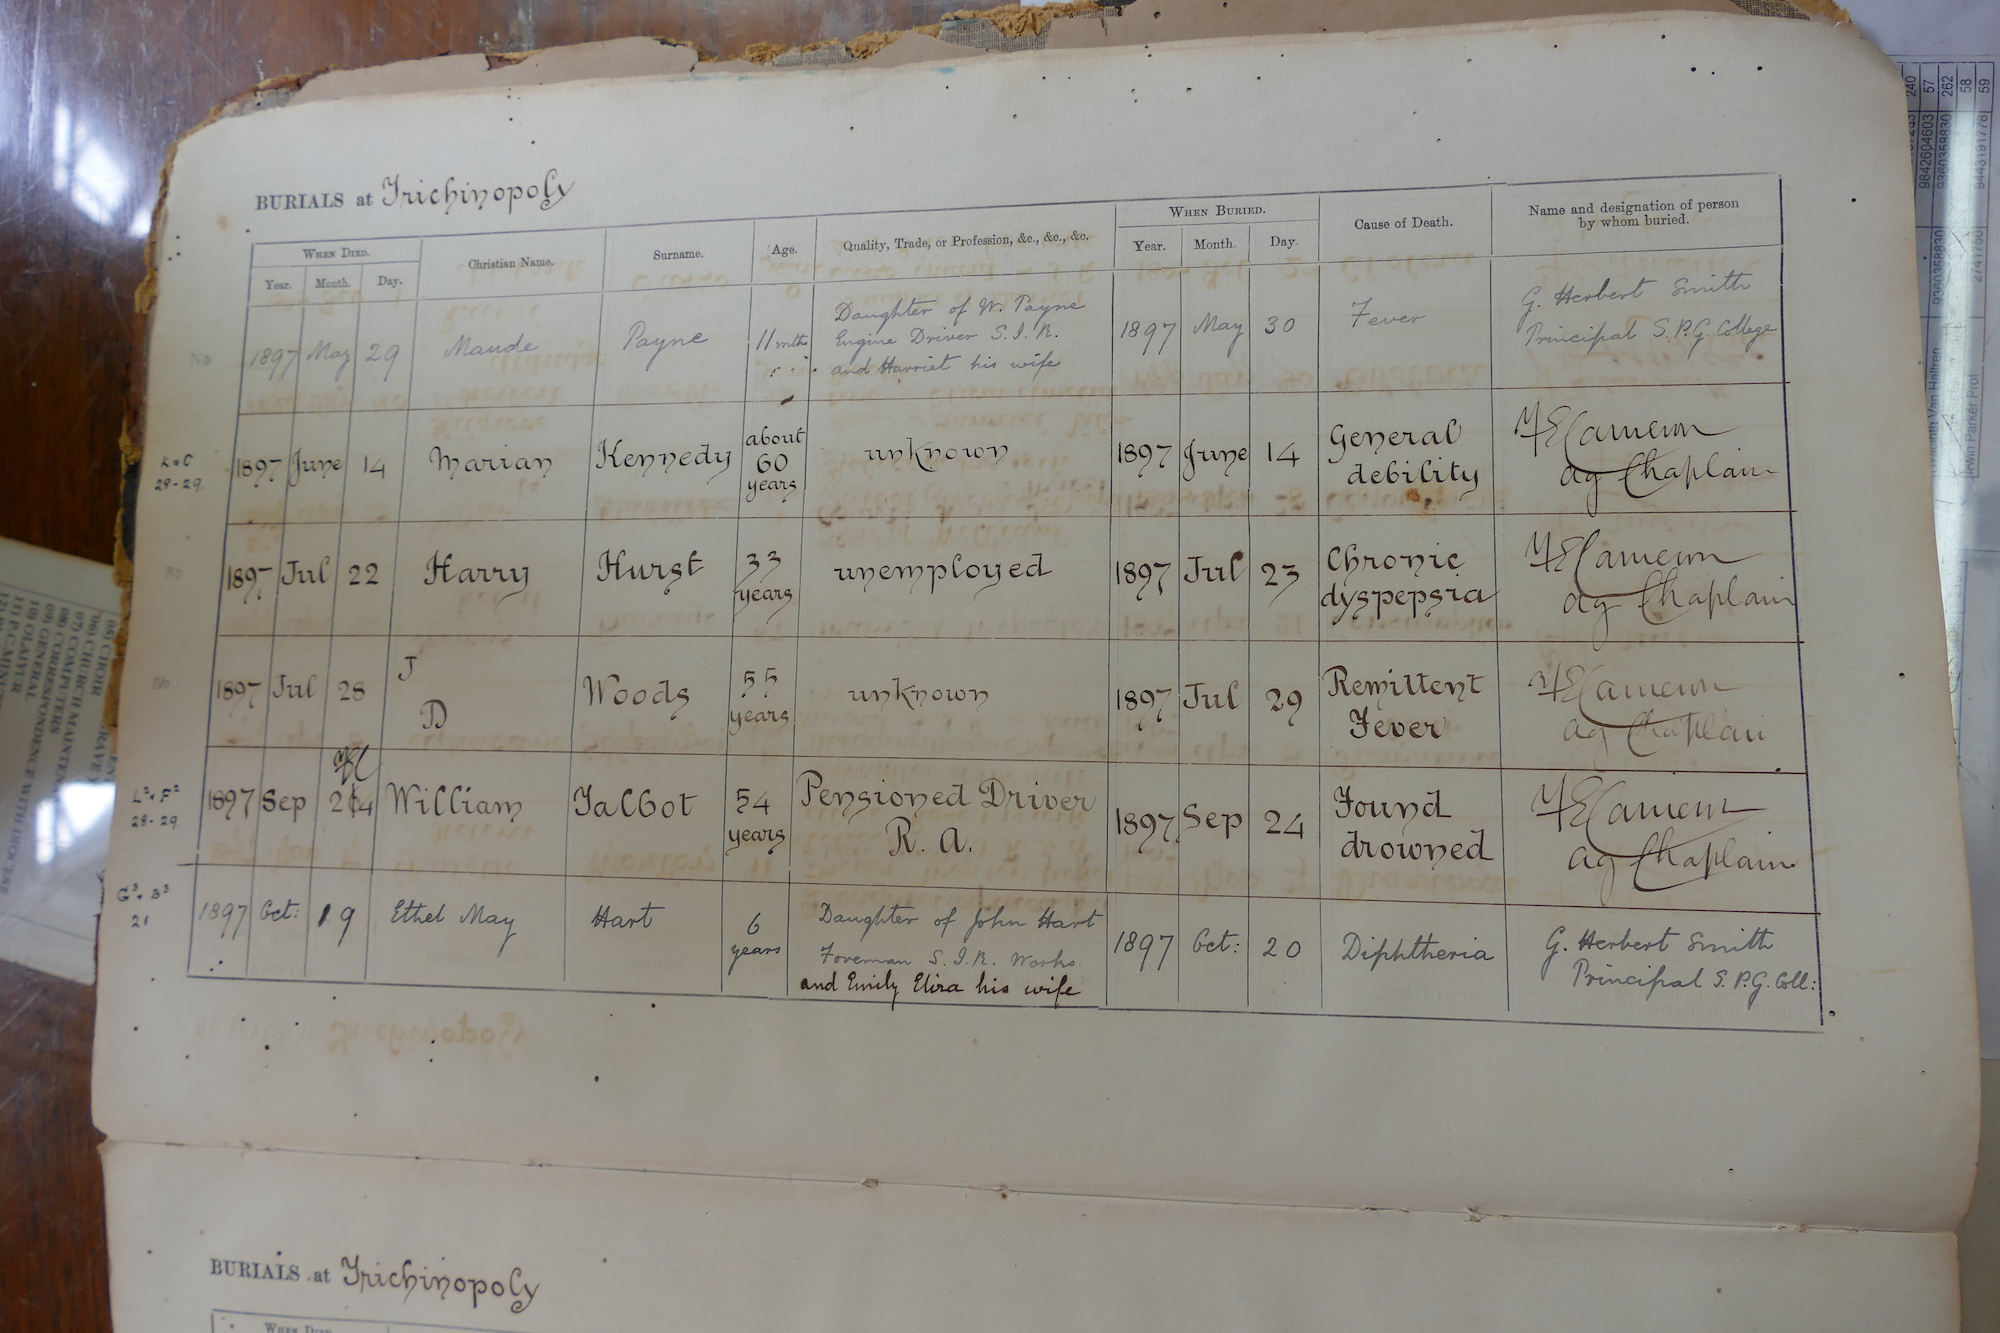 BURIALS at Trichinopoly
WHEN DIED.
Year. Month. Day.
Christian Name.
Surname.
Age.
Quality, Trade, or Profession, &c., &c., &c.
WHEN BURIED.
Year. Month. Day.
Cause of Death.
Name and designation of person
by whom buried.
No 1897 May 29 Maude Payne 11 mths
Daughter of W. Payne
Engine Driver S. I. R.
and Harriet his wife
1897 May 30 Fever
G. Herbert Smith
Principal S. P. G. College
28-29.
1897 June 14 Marian Kennedy
about
60
years
unknown
1897 June 14
General
debility
Cameron
ag Chaplain
No 1897 Jul 22 Harry Hurst
33
years
unemployed
1897 Jul 23
Chronic
dyspepsia
Cameron
ag Chaplain
No 1897 Jul 28
J
D
Woods
55
years
unknown
1897 Jul 29
Remittent
Fever
Cameron
ag Chaplain
28-29.
1897 Sep 24 William Talbot
54
years
Pensioned Driver
R. A.
1897 Sep 24
Found
drowned
Cameron
ag Chaplain
21
1897 Oct: 19 Ethel May Hart
6
years
Daughter of John Hart
Foreman S. I. R. Works.
and Emily Eliza his wife
1897 Oct: 20 Diphtheria
G. Herbert Smith
Principal S. P. G. Coll:
BURIALS at Trichinopoly
WHEN DIED
240
57
262
58
59
9842604603
9360358830
9443191778
9360358830
2741750
Van Haltren
Parker Prof
CHOIR
CHURCH MAINTEN
COMPUTERS
CORRESPONDENCE WITH DIOCESE
GENERAL
10) OLAIYUR